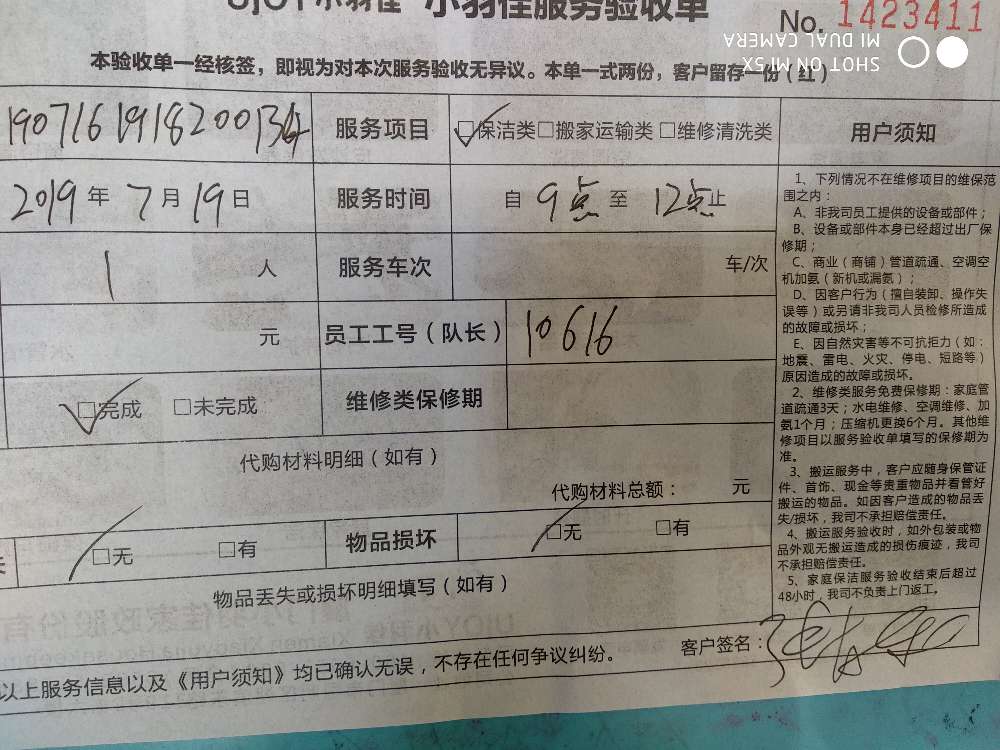 UJOY小羽佳 小羽佳服务验收单
No. 1423411
SHOT ON MI 5X
MI DUAL CAMERA
本验收单一经核签，即视为对本次服务验收无异议。本单一式两份，客户留存一份（红）
服务项目 □保洁类□搬家运输类 □维修清洗类
2019年7月19日 服务时间 自 9点 至 12点止
1 人 服务车次 车/次
元 员工工号（队长） 10616
□完成 □未完成 维修类保修期
代购材料明细（如有）
代购材料总额： 元
□无 □有 物品损坏 □无 □有
物品丢失或损坏明细填写（如有）
以上服务信息以及《用户须知》均已确认无误，不存在任何争议纠纷。
客户签名：
用户须知
1、下列情况不在维修项目的维保范
围之内：
A、非我司员工提供的设备或部件；
B、设备或部件本身已经超过出厂保
修期；
C、商业（商铺）管道疏通、空调空
机加氨（新机或漏氨）；
D、因客户行为（擅自装卸、操作失
误等）或另请非我司人员检修所造成
的故障或损坏；
E、因自然灾害等不可抗拒力（如：
地震、雷电、火灾、停电、短路等）
原因造成的故障或损坏。
2、维修类服务免费保修期：家庭管
道疏通3天；水电维修、空调维修、加
氨1个月；压缩机更换6个月。其他维
修项目以服务验收单填写的保修期为
准。
3、搬运服务中，客户应随身保管证
件、首饰、现金等贵重物品并看管好
搬运的物品。如因客户造成的物品丢
失/损坏，我司不承担赔偿责任。
4、搬运服务验收时，如外包装或物
品外观无搬运造成的损伤痕迹，我司
不承担赔偿责任。
5、家庭保洁服务验收结束后超过
48小时，我司不负责上门返工。